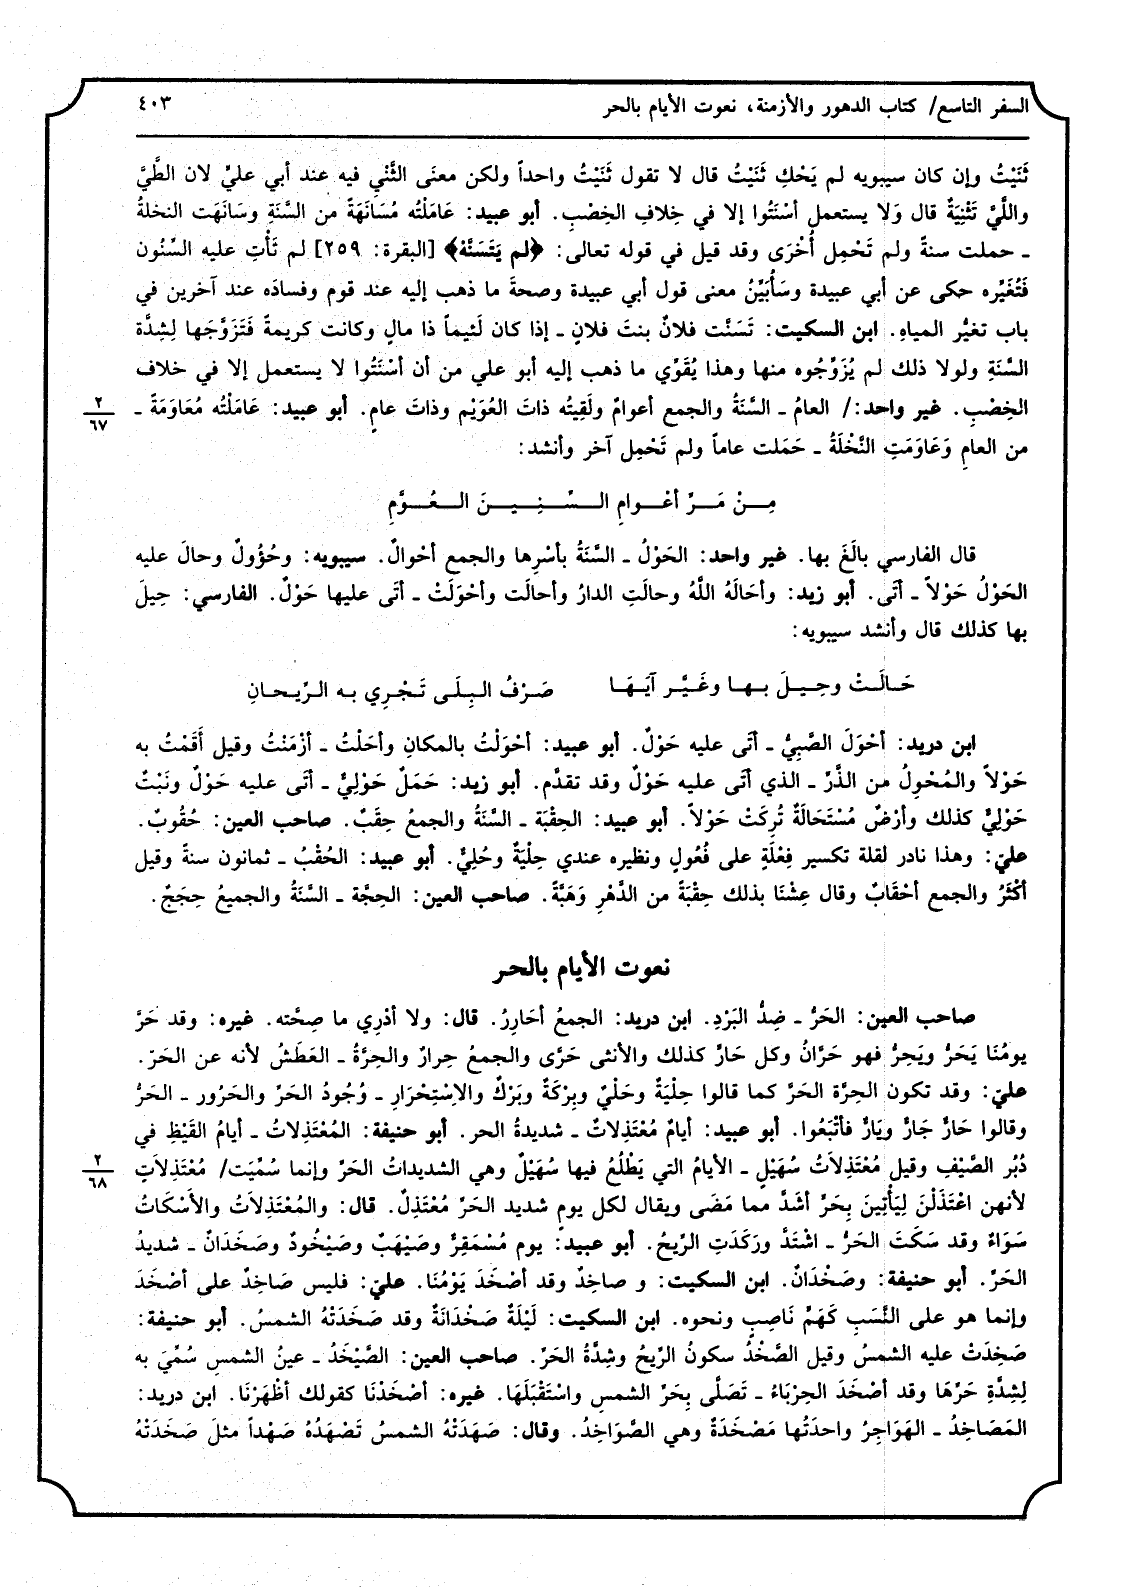 السفر التاسع/ كتاب الدهور والأزمنة، نعوت الأيام بالحر
٤٠٣
ثَنَيْتُ وإن كان سيبويه لم يَحْكِ ثَنَيْتُ قال لا تقول ثَنَيْتُ واحداً ولكن معنَى الثَّنْيِ فيه عند أبي عليّ لان الطَّيَّ
واللَّيَّ تَثْنِيَةٌ قال وَلا يستعمل أسْنَتُوا إلا في خِلافِ الخِصْبِ. أبو عبيد: عَامَلْته مُسَانَهَةً من السَّنَةِ وسَانَهَت النخلةُ
ـ حملت سنةً ولم تَحْمِل أُخْرَى وقد قيل في قوله تعالى: ﴿لم يَتَسَنَّهْ﴾ [البقرة: ٢٥٩] لم تَأْتِ عليه السِّنُون
فَتُغَيِّره حكى عن أبي عبيدة وسَأُبَيِّنُ معنى قول أبي عبيدة وصحةَ ما ذهب إليه عند قوم وفسادَه عند آخرين في
باب تغيُّر المياهِ. ابن السكيت: تَسَنَّت فلانٌ بنتَ فلانٍ ـ إذا كان لَئيماً ذا مالٍ وكانت كريمةً فَتَزَوَّجَها لِشِدَّة
السَّنَةِ ولولا ذلك لم يُزَوِّجُوه منها وهذا يُقَوِّي ما ذهب إليه أبو علي من أن أسْنَتُوا لا يستعمل إلا في خلاف
الخِصْبِ. غير واحد:/ العامُ ـ السَّنَةُ والجمع أعوامٌ ولَقِيتُه ذاتَ العُوَيْم وذاتَ عامٍ. أبو عبيد: عَامَلْته مُعَاوَمَةً ـ
٢
٦٧
من العامِ وَعَاوَمَتِ النَّخْلَةُ ـ حَمَلت عاماً ولم تَحْمِل آخر وأنشد:
مِـنْ مَـرِّ أعْـوامِ الـسِّـنِـيـنَ الـعُـوَّمِ
قال الفارسي بالَغَ بها. غير واحد: الحَوْلُ ـ السَّنَةُ بأسْرِها والجمع أحْوالٌ. سيبويه: وحُؤُولٌ وحالَ عليه
الحَوْلُ حَوْلاً ـ أتَى. أبو زيد: وأحَالَهُ اللَّهُ وحالَتِ الدارُ وأحالَت وأحْوَلَتْ ـ أتَى عليها حَوْلٌ. الفارسي: حِيلَ
بها كذلك قال وأنشد سيبويه:
حَـالَـتْ وحِـيـلَ بـهـا وغَـيَّـر آيَـهَـا
صَـرْفُ البِلَـى تَـجْرِي به الـرِّيـحـانِ
ابن دريد: أحْوَلَ الصَّبِيُّ ـ أتَى عليه حَوْلٌ. أبو عبيد: أحْوَلْتُ بالمكانِ وأحَلْتُ ـ أزْمَنْتُ وقيل أَقَمْتُ به
حَوْلاً والمُحْوِلُ من الذَّرِّ ـ الذي أتَى عليه حَوْلٌ وقد تقدَّم. أبو زيد: حَمَلٌ حَوْلِيٌّ ـ أتَى عليه حَوْلٌ ونَبْتٌ
حَوْلِيٌّ كذلك وأرْضٌ مُسْتَحَالَةٌ تُرِكَتْ حَوْلاً. أبو عبيد: الحِقْبَة ـ السَّنَةُ والجمعُ حِقَبٌ. صاحب العين: حُقُوبٌ.
عليّ: وهذا نادر لقلة تكسير فِعْلَةٍ على فُعُولٍ ونظيره عندي حِلْيَةٌ وحُلِيٌّ. أبو عبيد: الحُقْبُ ـ ثمانون سنةً وقيل
أكْثَرُ والجمع أحْقَابٌ وقال عِشْنَا بذلك حِقْبَةً من الدَّهْرِ وَهَبَّةً. صاحب العين: الحِجَّة ـ السَّنَةُ والجميعُ حِجَجٌ.
نعوت الأيام بالحر
صاحب العين: الحَرُّ ـ ضِدُّ البَرْدِ. ابن دريد: الجمعُ أحَارِرُ. قال: ولا أدْرِي ما صِحَّته. غيره: وقد حَرَّ
يومُنَا يَحَرُّ ويَحِرُّ فهو حَرَّانُ وكل حَارٍّ كذلك والأنثى حَرَّى والجمعُ حِرارٌ والحِرَّةُ ـ العَطَشُ لأنه عن الحَرّ.
عليّ: وقد تكون الحِرَّة الحَرَّ كما قالوا حِلْيَةٌ وحَلْيٌ وبِرْكَةٌ وبَرْكٌ والاِسْتِحْرَارِ ـ وُجُودُ الحَرِّ والحَرُور ـ الحَرُّ
وقالوا حَارٌّ جَارٌّ ويَارٌّ فأتْبَعُوا. أبو عبيد: أيامٌ مُعْتَذِلاتٌ ـ شديدةُ الحر. أبو حنيفة: المُعْتَذِلاتُ ـ أيامُ القَيْظِ في
دُبُر الصَّيْفِ وقيل مُعْتَذِلاَتُ سُهَيْلٍ ـ الأيامُ التي يَطْلُعُ فيها سُهَيْلٌ وهي الشديداتُ الحَرِّ وإنما سُمِّيَت/ مُعْتَذِلاَتٍ
٢
٦٨
لأنهن اعْتَذَلْنَ لِيَأْتِينَ بِحَرٍّ أشَدَّ مما مَضَى ويقال لكل يومٍ شديد الحَرِّ مُعْتَذِلٌ. قال: والمُعْتَذِلاَتُ والأسْكَاتُ
سَوَاءٌ وقد سَكَتَ الحَرُّ ـ اشْتَدَّ ورَكَدَتِ الرِّيحُ. أبو عبيد: يوم مُسْمَقِرٌّ وصَيْهَبٌ وصَيْخُودٌ وصَخَدَانٌ ـ شديدُ
الحَرِّ. أبو حنيفة: وصَخْدَانٌ. ابن السكيت: و صاخِدٌ وقد أصْخَدَ يَوْمُنَا. عليّ: فليس صَاخِدٌ على أصْخَدَ
وإنما هو على النَّسَبِ كَهَمٍّ نَاصِبٍ ونحوه. ابن السكيت: لَيْلَةٌ صَخْدَانَةٌ وقد صَخَدَتْهُ الشمسُ. أبو حنيفة:
صَخِدَتْ عليه الشمسُ وقيل الصَّخْدُ سكونُ الرِّيحُ وشِدَّةُ الحَرِّ. صاحب العين: الصَّيْخَدُ ـ عينُ الشمسِ سُمِّيَ به
لِشِدَّةِ حَرِّهَا وقد أصْخَدَ الحِرْبَاءُ ـ تَصَلَّى بِحَرِّ الشمسِ واسْتَقْبَلَهَا. غيره: أصْخَدْنَا كقولك أظْهَرْنَا. ابن دريد:
المَصَاخِدُ ـ الهَوَاجِرُ واحدَتُها مَصْخَدَةٌ وهي الصَّوَاخِدُ. وقال: صَهَدَتْهُ الشمسُ تَصْهَدُهُ صَهْداً مثلَ صَخَدَتْهُ